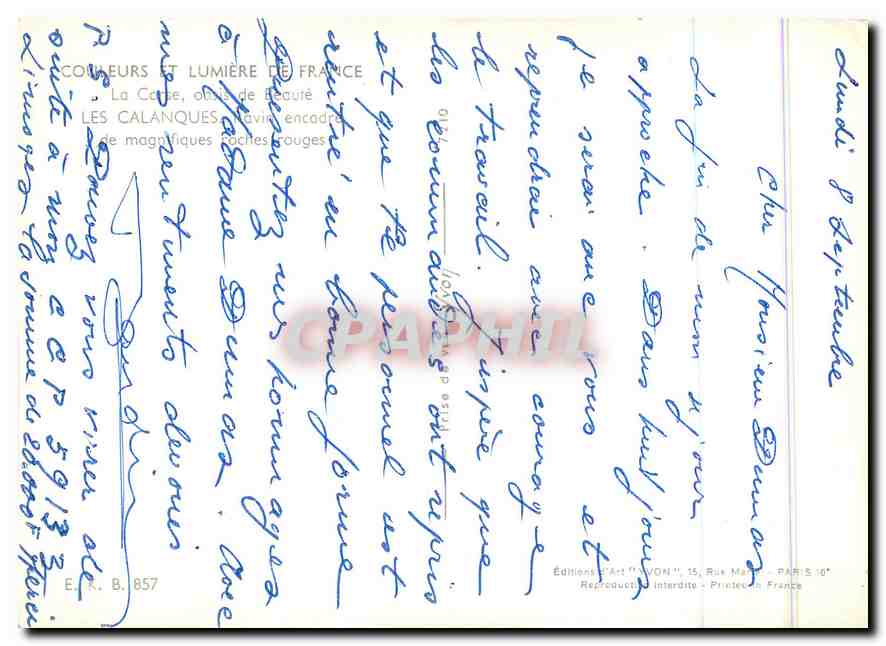 COULEURS ET LUMIÈRE DE FRANCE
La Corse, oasis de Beauté
LES CALANQUES. Ravin encadré
de magnifiques roches rouges
E. K. B. 857
Éditions d'Art "YVON", 15, Rue Martel - PARIS 10e
Reproduction interdite - Printed in France
CPAPHIL
Lundi 8 Septembre
Cher Monsieur Dumas
La fin de mon séjour
approche. Dans huit jours
je serai avec vous et
reprendrai avec courage
le travail. J'espère que
les commandes ont repris
et que le personnel est
rentré en bonne forme
Présentez mes hommages
à Madame Dumas. Avec
mes sentiments dévoués
P.S. Pouvez vous virer de
suite à mon CCP 59133
Limoges la somme de 20.000f Merci